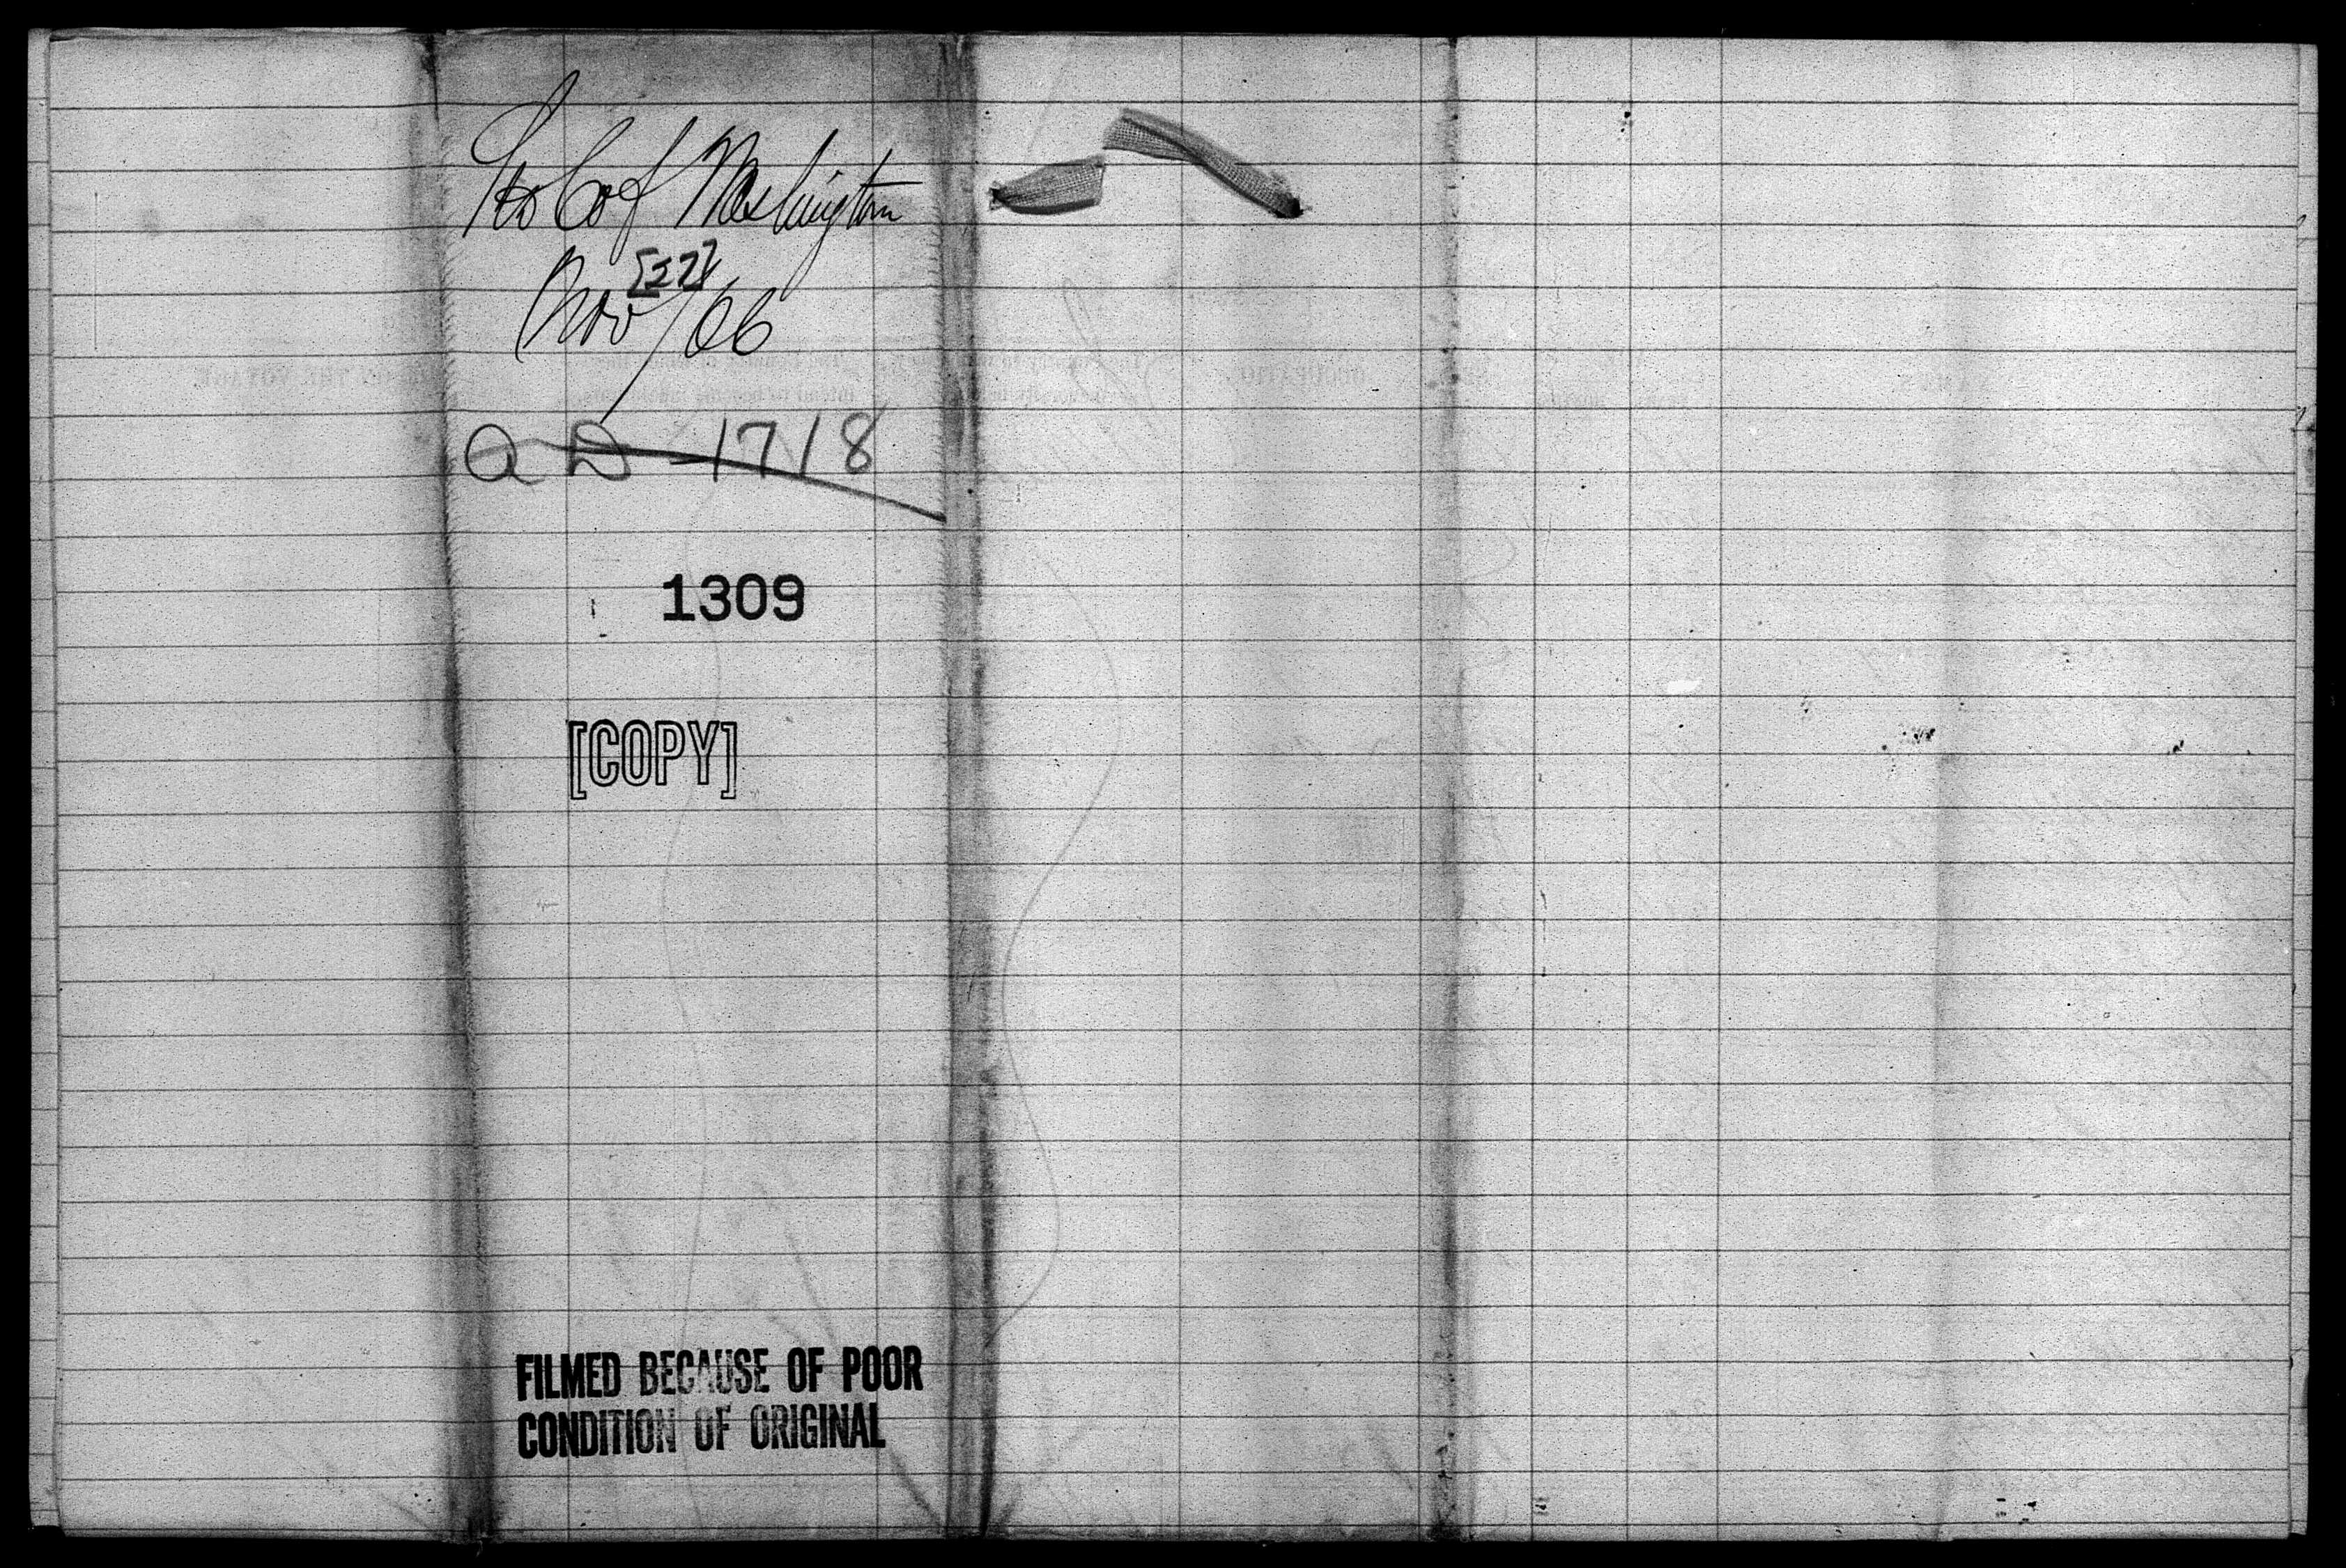 Str City of Washington
Nov [27]/66
Q D 1718
1309
[COPY]
FILMED BECAUSE OF POOR
CONDITION OF ORIGINAL